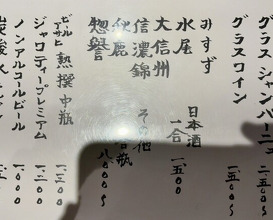 グラスシャンパーニュ
グラスワイン 二五〇〇〜
日本酒 一合 一五〇〇
みすず
水尾
大信州
信濃錦
秋鹿
惣誉
その他 瓶 八〇〇〇〜
ビール アサヒ 熟撰 中瓶 一三〇〇
ジャロティープレミアム 一八〇〇
ノンアルコールビール 一〇〇〇
炭酸水